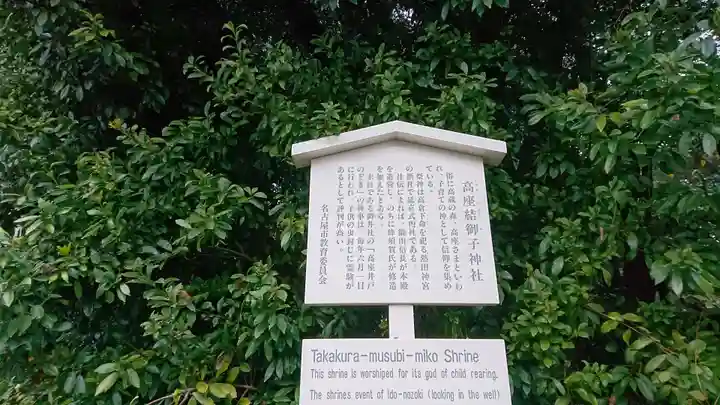 高座結御子神社
俗に高蔵の森、高座さまといわ
れ、子育ての神として信仰を集め
ている。
祭神は高倉下命を祀る熱田神宮
の摂社で延喜式内社である。
社伝によれば、織田信長が本殿
を造営し、のちに蜂須賀氏が修造
を加えたとある。
末社である御井社の「高座井戸
のぞき」の神事は、毎年六月一日
に行われ、子供の虫封じに霊験が
あるとして評判が高い。
名古屋市教育委員会
Takakura-musubi-miko Shrine
This shrine is worshiped for its god of child rearing.
The shrines event of Ido-nozoki (looking in the well)